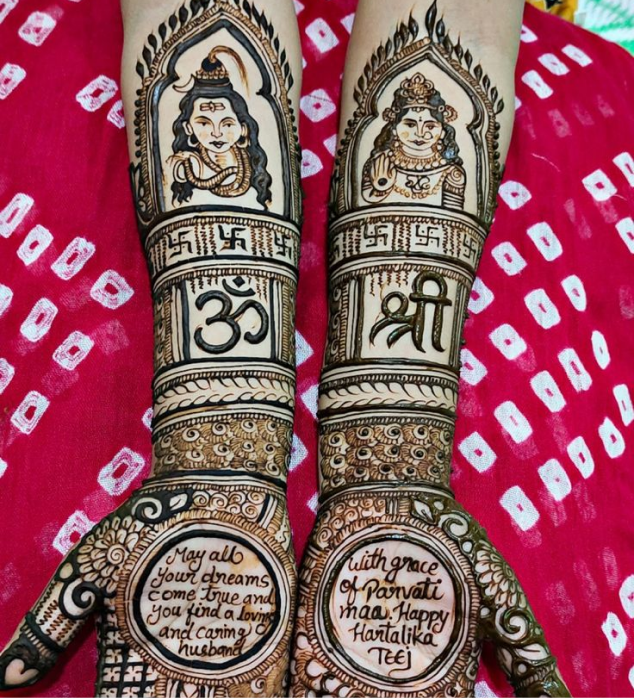 ॐ
श्री
May all
your dreams
come true and
you find a loving
and caring
husband
With grace
of Parvati
maa. Happy
Hartalika
TEEJ